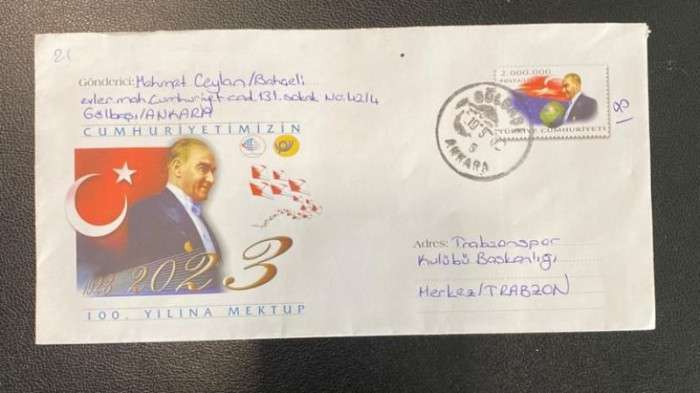 21
Gönderici: Mehmet Ceylan/Bahçeli
evler mah. Cumhuriyet cad. 131. sokak No: 42/4
Gölbaşı/ANKARA
CUMHURİYETİMİZİN
1923 2023
100. YILINA MEKTUP
2.000.000
TÜRKİYE CUMHURİYETİ
18
GÖLBAŞI
ANKARA
Adres: Trabzonspor
Kulübü Başkanlığı
Merkez/TRABZON